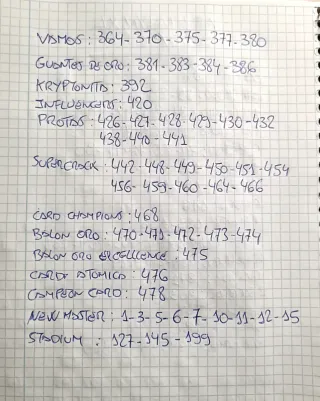 VAMOS : 364-370-375-377-380
GUANTES DE ORO : 381-383-384-386
KRYPTONITA : 392
INFLUENCERS : 420
PROTAS : 426-427-428-429-430-432
438-440-441
SUPERCROCK : 442-448-449-450-451-454
456-459-460-464-466
CARD CHAMPIONS : 468
BALON ORO : 470-471-472-473-474
BALON ORO EXCELLENCE : 475
CARD ATOMICA : 476
CAMPEON CARD : 478
NEW MASTER : 1-3-5-6-7-10-11-12-15
STADIUM : 127-145-199